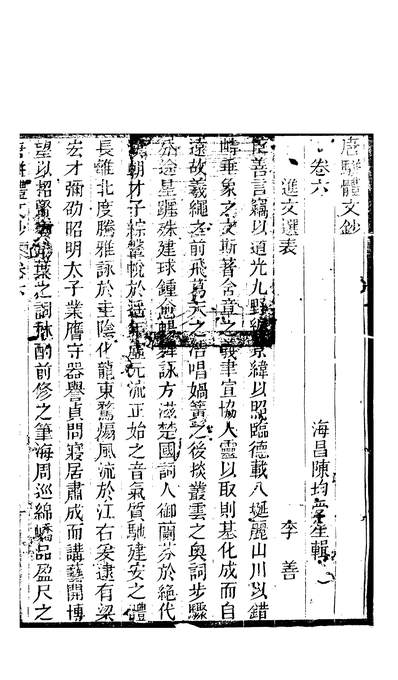 唐駢體文鈔
卷六
海昌陳均 輯
進文選表
李善
臣善言竊以道光九野縟景緯以照臨德載八埏麗山川以錯
峙垂象之文斯著含章之義聿宣協人靈以取則基化成而自
遠故羲繩之前飛葛天之浩唱媧簧之後掞叢雲之奧詞步驟
分途星躔殊建球鍾愈暢舞詠方滋楚國詞人御蘭芬於絕代
漢朝才子綜鞶帨於遙年虛元流正始之音氣質馳建安之體
長離北度騰雅詠於圭陰化龍東騖煽風流於江右爰逮有梁
宏才彌劭昭明太子業膺守器譽貞問寢居肅成而講藝開博
望以招賢 之詞林酌前修之筆海周巡綿嶠品盈尺之